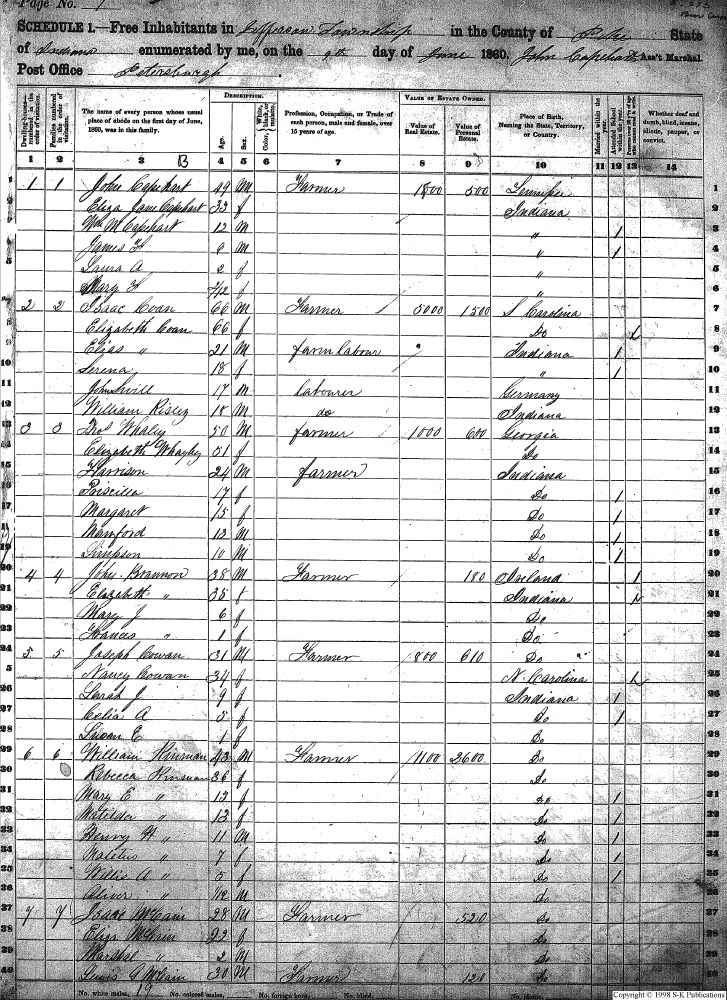 Page No. 1
SCHEDULE 1.—Free Inhabitants in Jefferson Township in the County of Pike State
of Indiana enumerated by me, on the 9th day of June 1860. John Capehart Ass't Marshal.
Post Office Petersburgh
Dwelling-houses—numbered in the order of visitation.
Families numbered in the order of visitation.
The name of every person whose usual place of abode on the first day of June, 1860, was in this family.
DESCRIPTION.
Age.
Sex.
Color, White, black, or mulatto.
Profession, Occupation, or Trade of each person, male and female, over 15 years of age.
VALUE OF ESTATE OWNED.
Value of Real Estate.
Value of Personal Estate.
Place of Birth, Naming the State, Territory, or Country.
Married within the year.
Attended School within the year.
Whether deaf and dumb, blind, insane, idiotic, pauper, or convict.
1 2 3 B 4 5 6 7 8 9 10 11 12 13 14
1 1 1 John Capehart 49 M Farmer 1500 500 Tennissee 1
2 Eliza Jane Capehart 33 f Indiana 2
3 Wm M Capehart 12 M " 1 3
James F 6 M " 1 4
5 Laura A 2 f " 5
Mary F /12 f " 6
7 2 2 Isaac Coan 66 M Farmer 5000 1500 S Carolina 7
8 Elizabeth Coan 66 f Do 8
9 Elias " 21 M farm labour Indiana 1 9
10 Serena 18 f " 1 10
11 John 17 M labourer Germany 11
12 William Risley 18 M do Indiana 12
13 3 3 Thos Whaley 50 M farmer 1000 600 Georgia 13
14 Elizabeth Whayley 51 f Do 14
15 Harrison 24 M farmer Indiana 15
16 Priscilla 17 f Do 1 16
17 Margaret 15 f Do 1 17
18 Manford 13 M Do 1 18
19 Simpson 10 M Do 1 19
20 4 4 John Brannon 38 M Farmer 180 Ireland 1 20
21 Elizabeth " 35 f Indiana 21
22 Mary J 6 f Do 22
23 Frances " 1 f Do 23
24 5 5 Joseph Cowan 31 M Farmer 800 610 Do 24
25 Nancy Cowan 34 f N. Carolina 25
26 Sarah J 9 f Indiana 1 26
27 Celia A 5 f Do 1 27
28 Susan E 1 f Do 28
29 6 6 William Hinman 43 M Farmer 1100 2600 Do 29
30 Rebecca Hinman 36 f Do 30
31 Mary E " 13 f Do 1 31
32 Matilda " 12 f Do 1 32
33 Henry H " 11 M Do 1 33
34 " 7 f Do 1 34
35 Willis A " 5 f Do 1 35
36 Oliver " /12 M Do 36
37 7 7 Isaac McCain 28 M Farmer 520 Do 37
38 Eliza McCain 22 f Do 38
39 Marshal " 2 M Do 39
40 Lewis G McCain 20 M Farmer 120 Do 40
No. white males, 19 No. colored males, No. foreign born, No. blind,
Copyright © 1998 S-K Publications